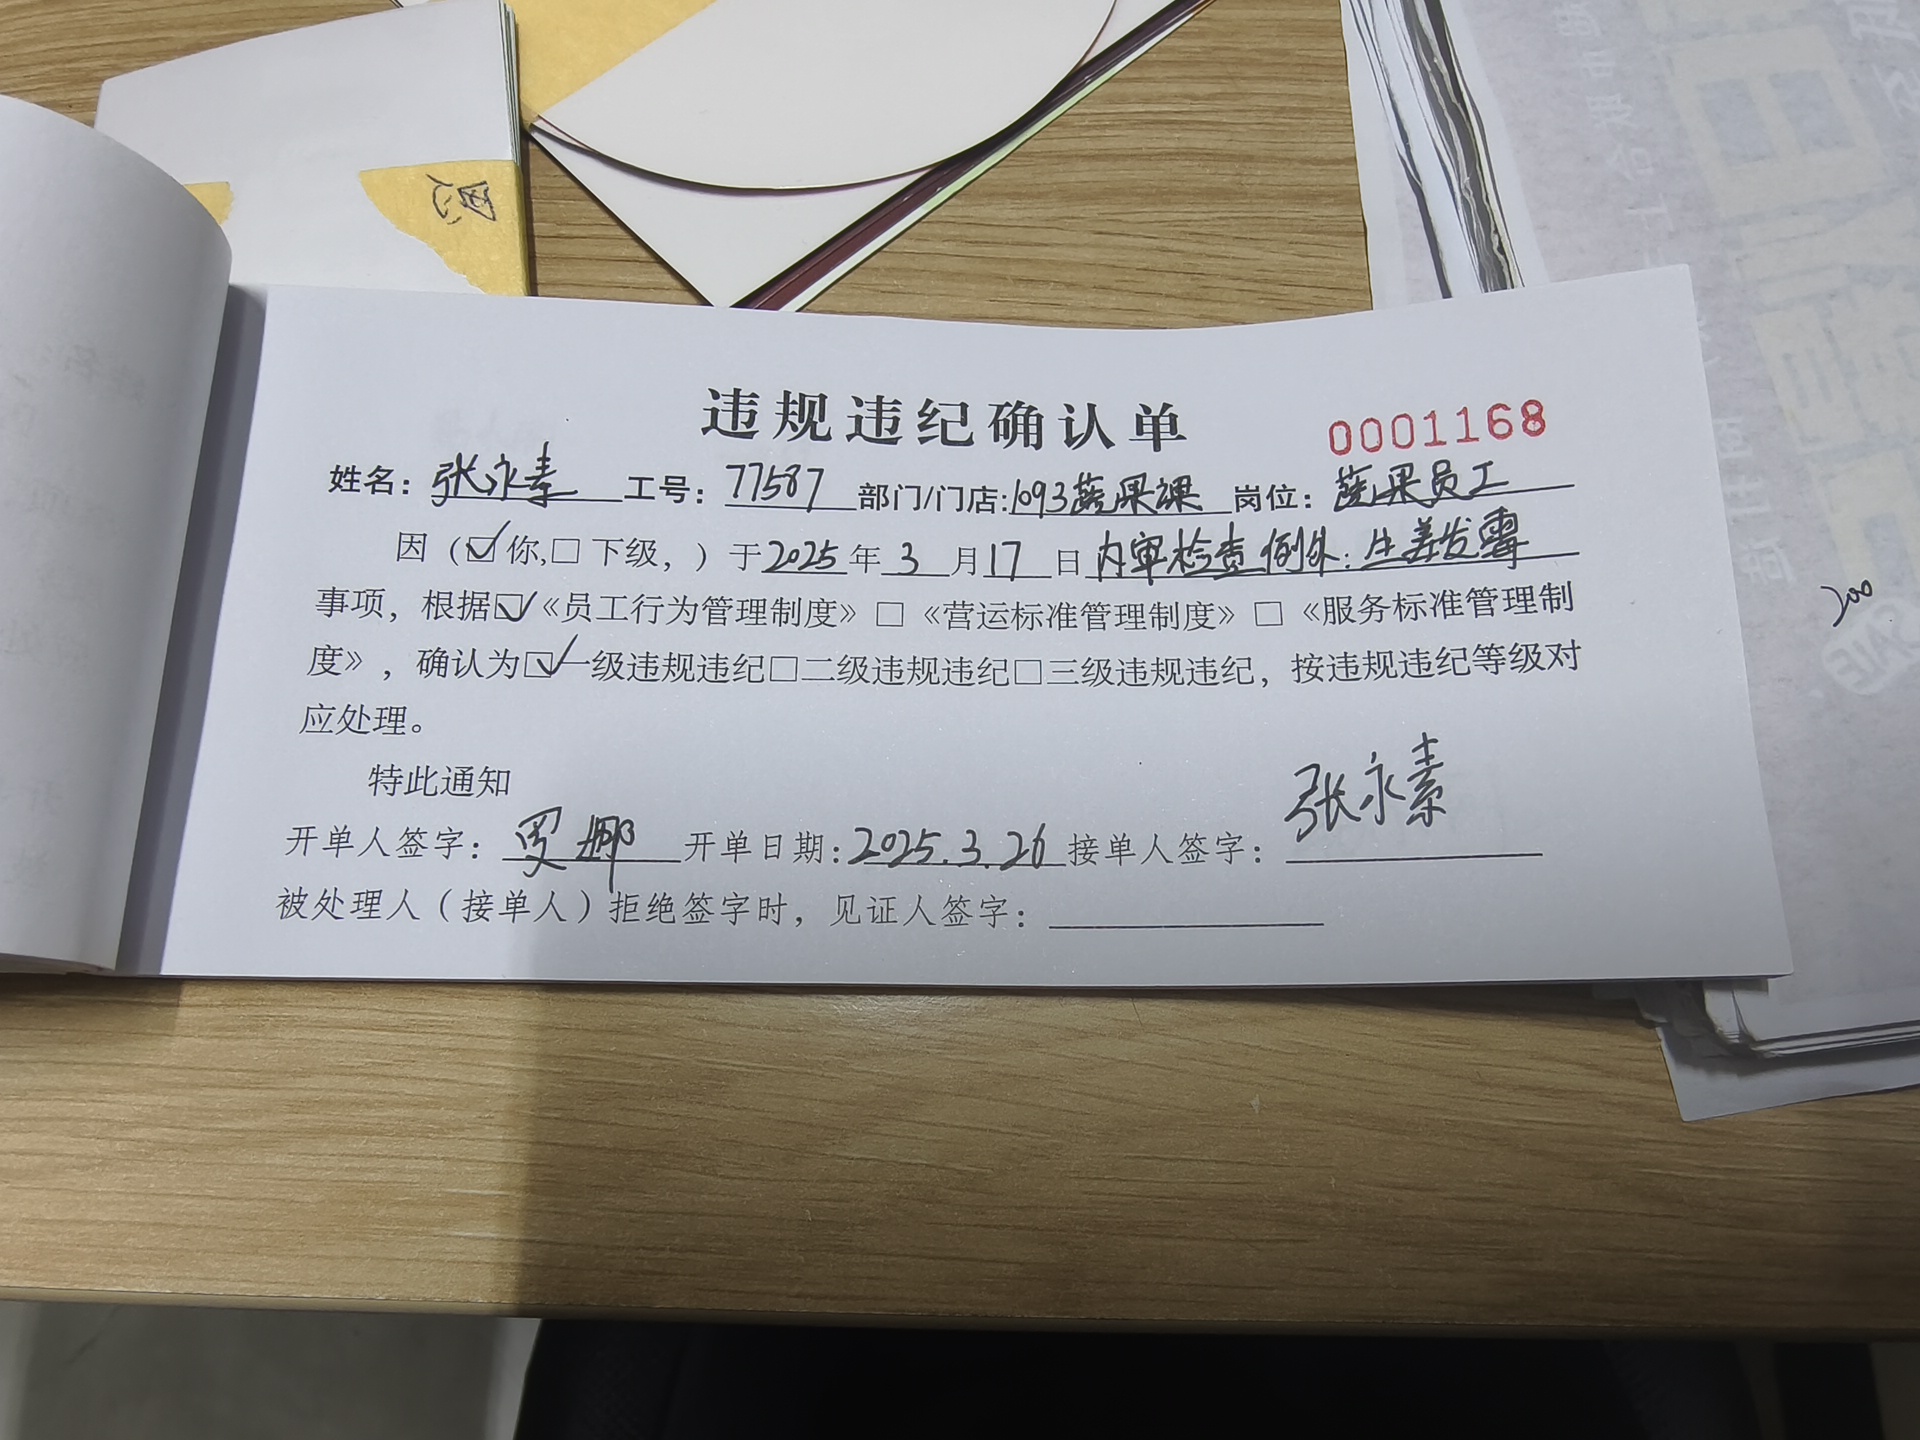 违规违纪确认单 0001168
姓名：张永素 工号：77587 部门/门店:1093蔬果课 岗位：蔬果员工
因（☑你,□下级，）于2025年3月17日内审检查例外：生姜发霉
事项，根据☑《员工行为管理制度》□《营运标准管理制度》□《服务标准管理制
度》，确认为☑一级违规违纪□二级违规违纪□三级违规违纪，按违规违纪等级对
应处理。
特此通知
开单人签字：罗娜 开单日期:2025.3.26 接单人签字：张永素
被处理人（接单人）拒绝签字时，见证人签字：
200